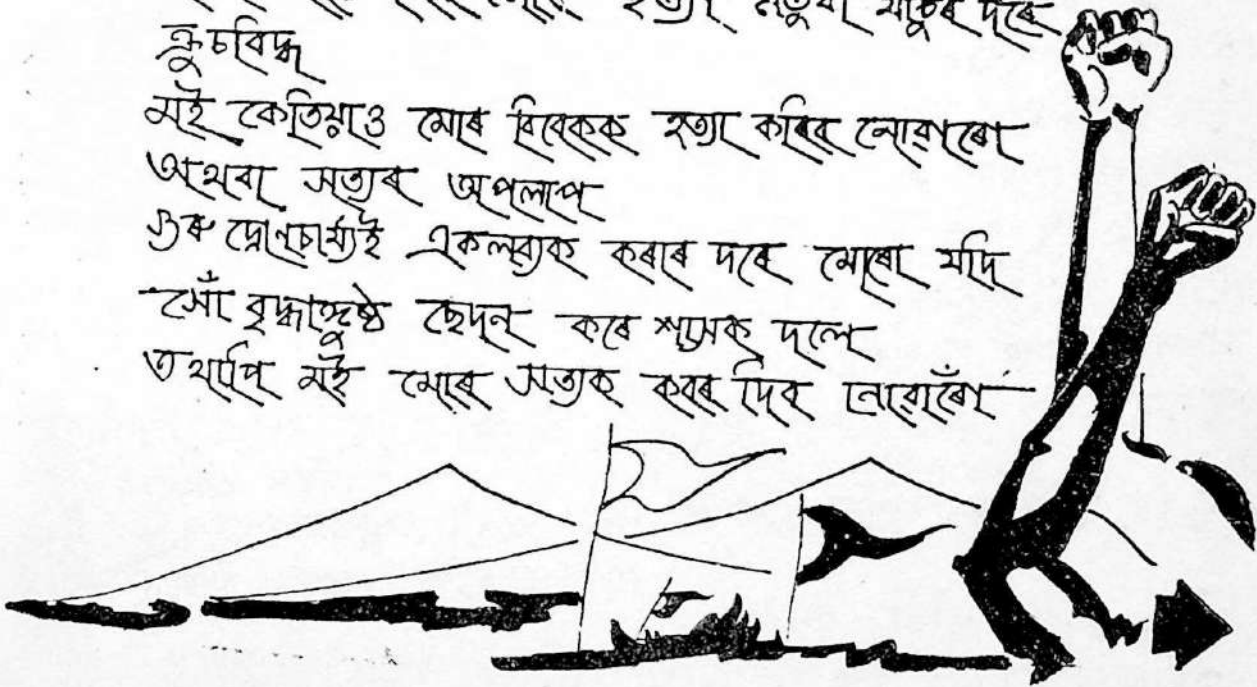 হত্যা নতুবা যীচুৰ দৰে
ক্ৰুচবিদ্ধ
মই কেতিয়াও মোৰ বিবেকক হত্যা কৰিব নোৱাৰোঁ
অথবা সত্যৰ অপলাপ
গুৰু দ্ৰোণাচাৰ্য্যই একলব্যক কৰাৰ দৰে মোৰো যদি
সোঁ বৃদ্ধাঙ্গুষ্ঠ ছেদন কৰে শাসক দলে
তথাপি মই মোৰ সত্যক কবৰ দিব নোৱাৰোঁ